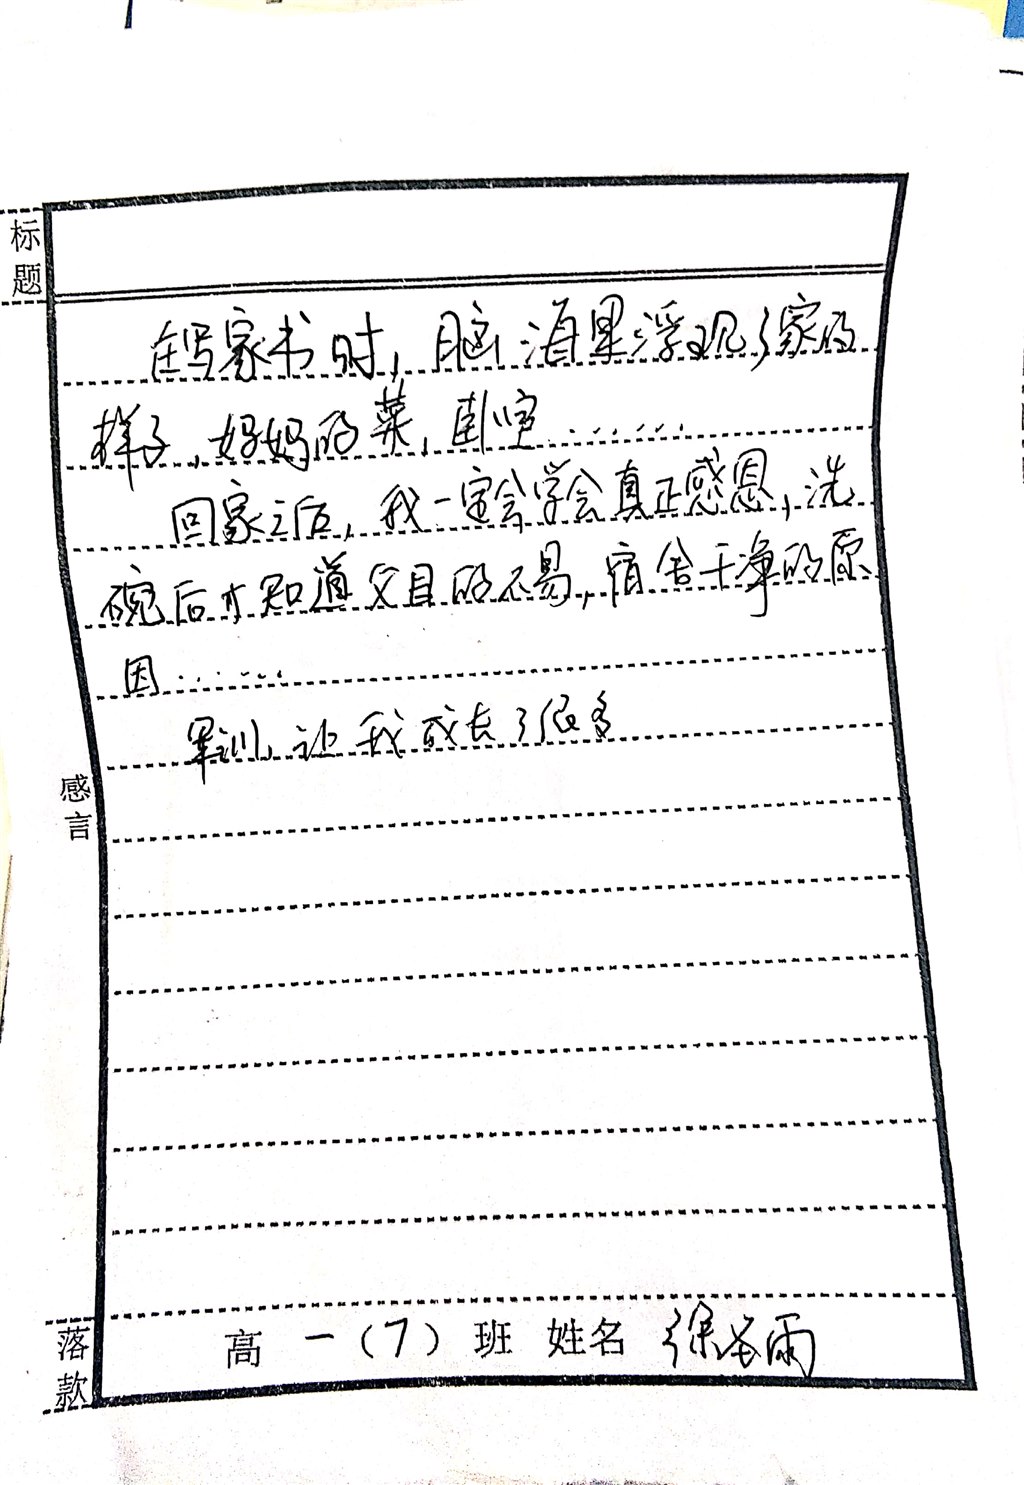 标题
在写家书时，脑海里浮现了家的
样子，妈妈的菜，卧室……
回家之后，我一定会学会真正感恩，洗
碗后才知道父母的不易，宿舍干净的原
因……
军训，让我成长了很多
感言
落款 高一（7）班 姓名 徐雨